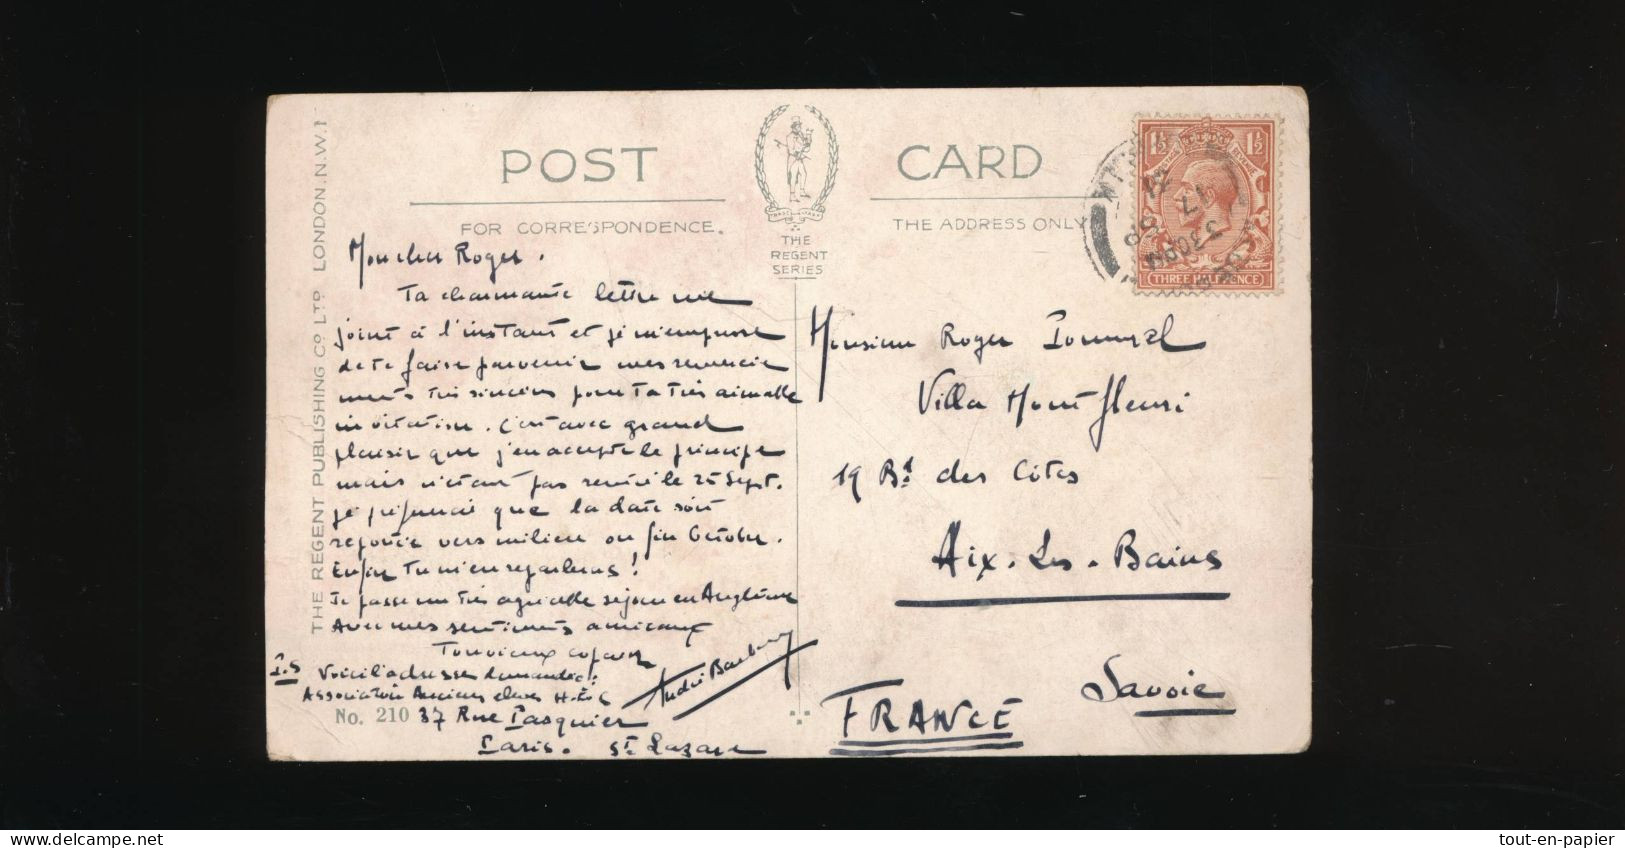 POST CARD
FOR CORRESPONDENCE.
THE ADDRESS ONLY
THE
REGENT
SERIES
THE REGENT PUBLISHING Co LTD LONDON. N.W.1
1½ 1½
THREE HALFPENCE
3 30PM
17 SP
Mon cher Roger.
Ta charmante lettre me
joint à l'instant et je m'empresse
de te faire parvenir mes remercie
ments très sincères pour ta très aimable
invitation. C'est avec grand
plaisir que j'en accepte le principe
mais n'étant pas rentré le 25 Sept.
je préfererai que la date soit
reportée vers milieu ou fin Octobre.
Enfin tu m'en reparleras!
Je passe un très agréable séjour en Angleterre
Avec mes sentiments amicaux
Ton vieux copain
André
P.S Voici l'adresse demandée:
Association Anciens élèves
No. 210 37 Rue Pasquier
Paris. St Lazare
Monsieur Roger
Villa Montfleuri
19 Bd des Côtes
Aix-Les-Bains
Savoie
FRANCE
tout-en-papier